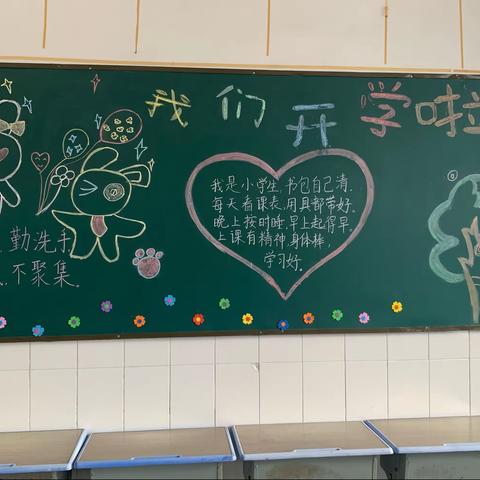 我们开学啦
我是小学生,书包自己清.
每天看课表,用具都带好.
晚上按时睡,早上起得早.
上课有精神,身体棒,
学习好.
勤洗手
不聚集.